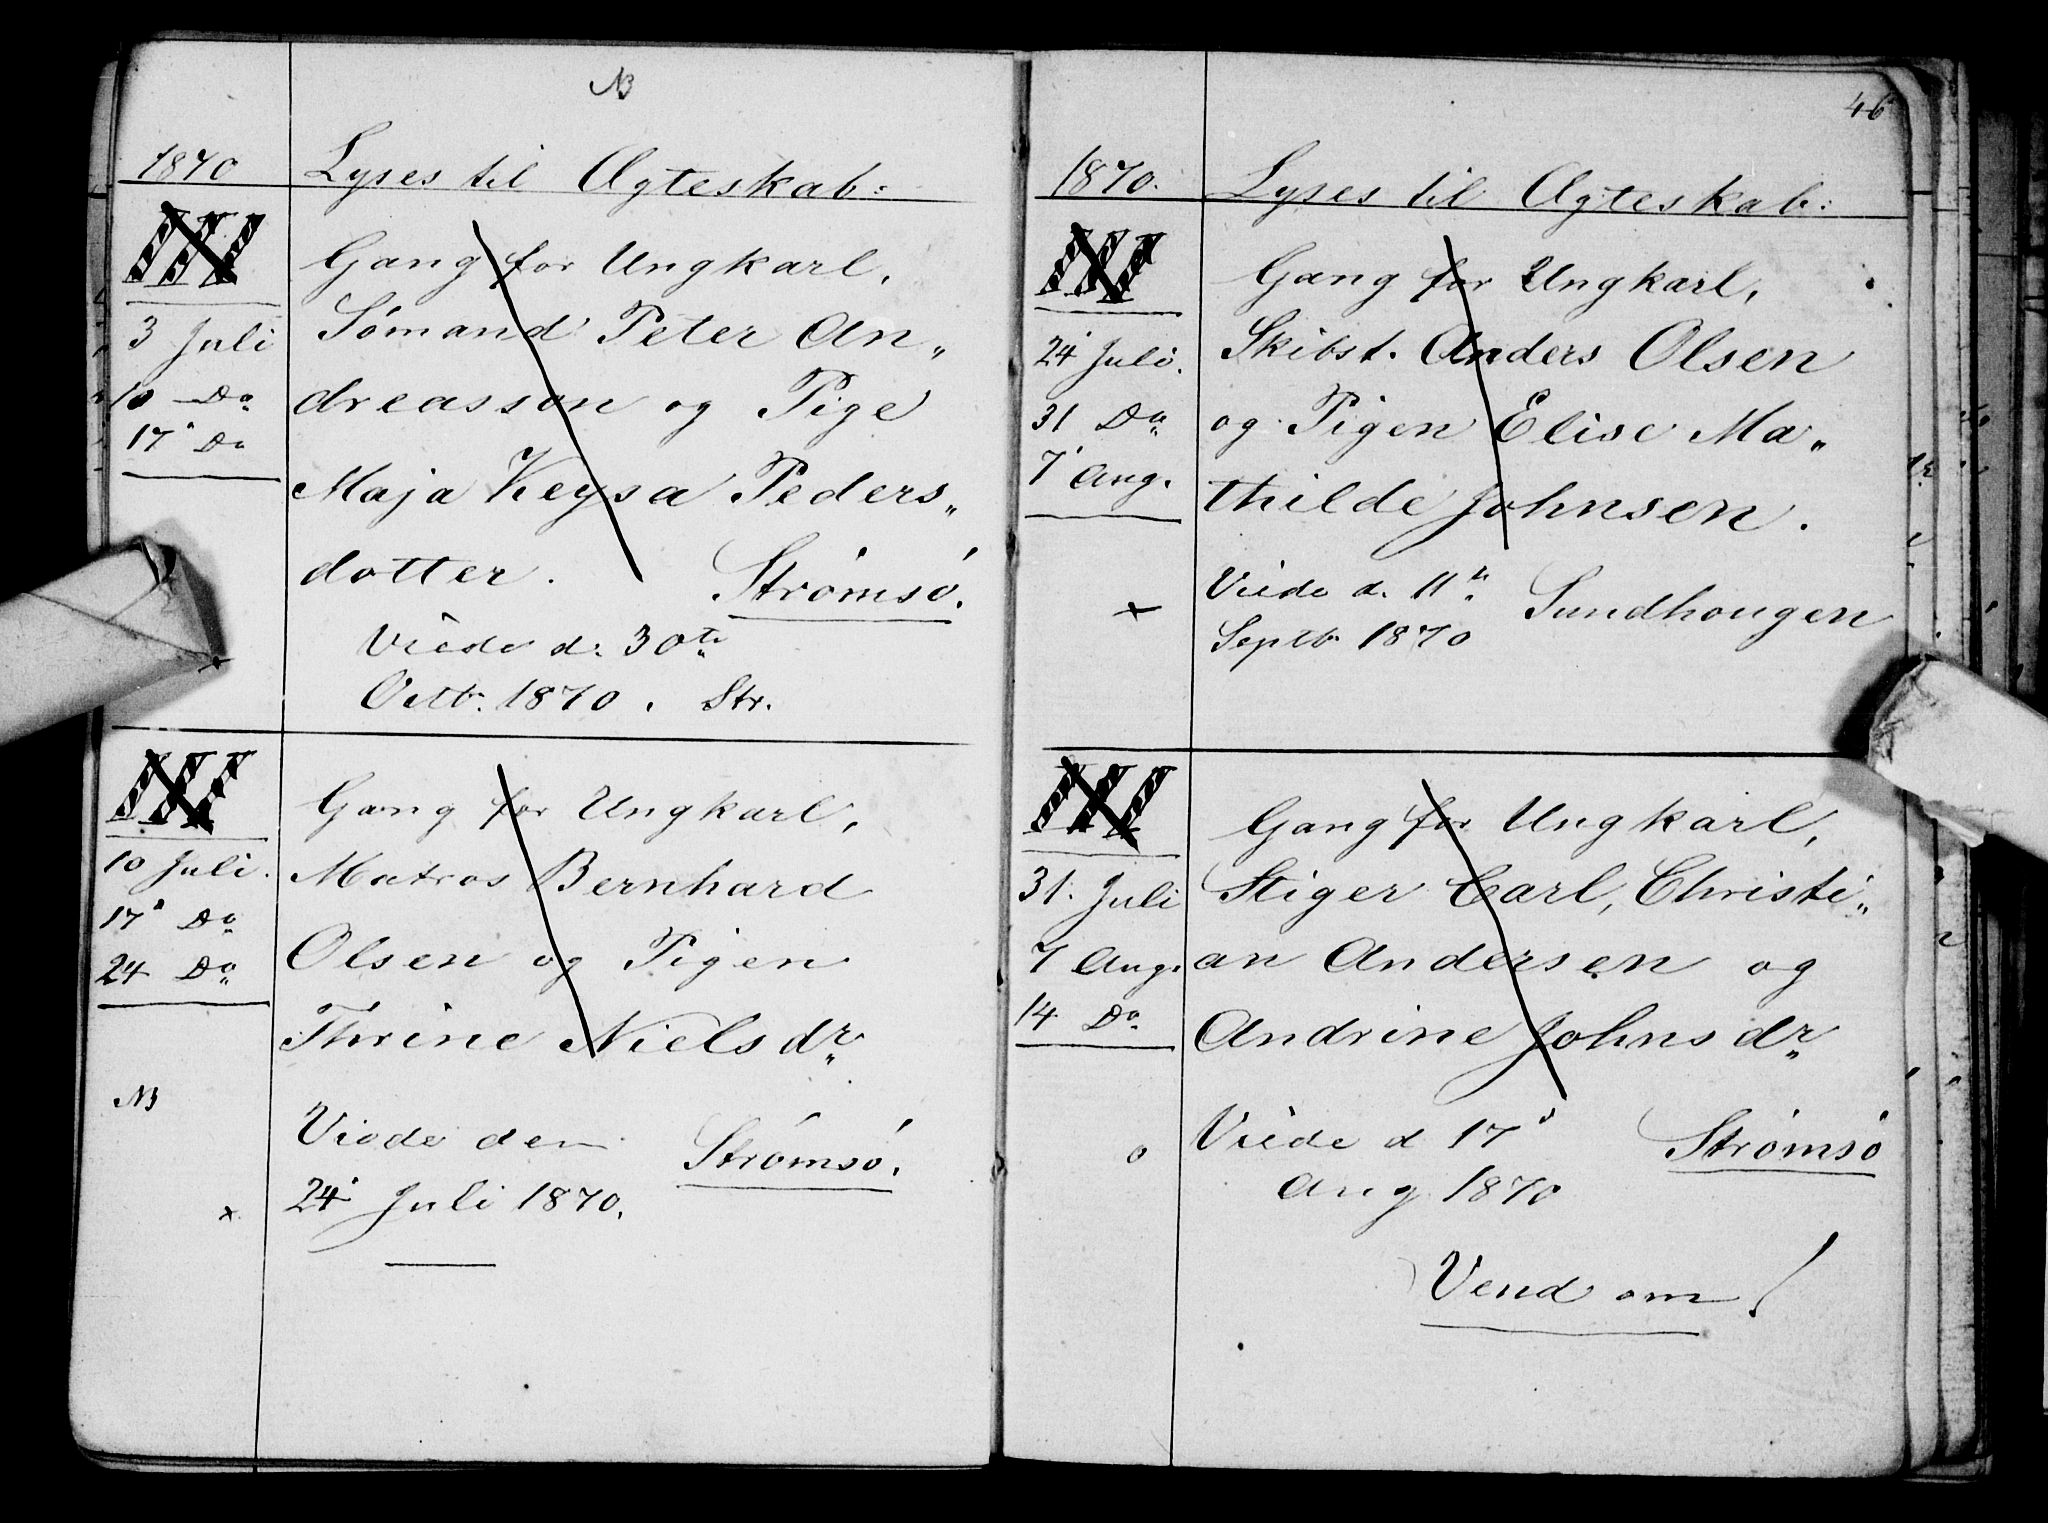 NB
1870
Lyses til Ægteskab:
III
Gang for Ungkarl,
3 Juli
Sømand Peter An„
10 Do
dreasson og Pige
17' Do
Maja Keysa Peders„
dotter. Strømsø.
Viede d. 30te
x
Octb. 1870. Str.
III
Gang for Ungkarl,
10 Juli.
Matros Bernhard
17' Do
Olsen og Pigen
24 Do
Thrine Nielsdr.
NB
Viede den Strømsø.
x
24' Juli 1870.
46
1870.
Lyses til Ægteskab:
III
Gang for Ungkarl,
24' Juli.
Skibst. Anders Olsen
31 Do
og Pigen Elise Ma„
7' Aug.
thilde Johnsen.
x
Viede d. 11te Sundhougen
Septb 1870
III
Gang for Ungkarl,
31. Juli
Stiger Carl, Christi„
7 Aug.
an Andersen og
14 Do
Andrine Johnsdr.
o
Viede d 17' Strømsø
Aug 1870
Vend om!